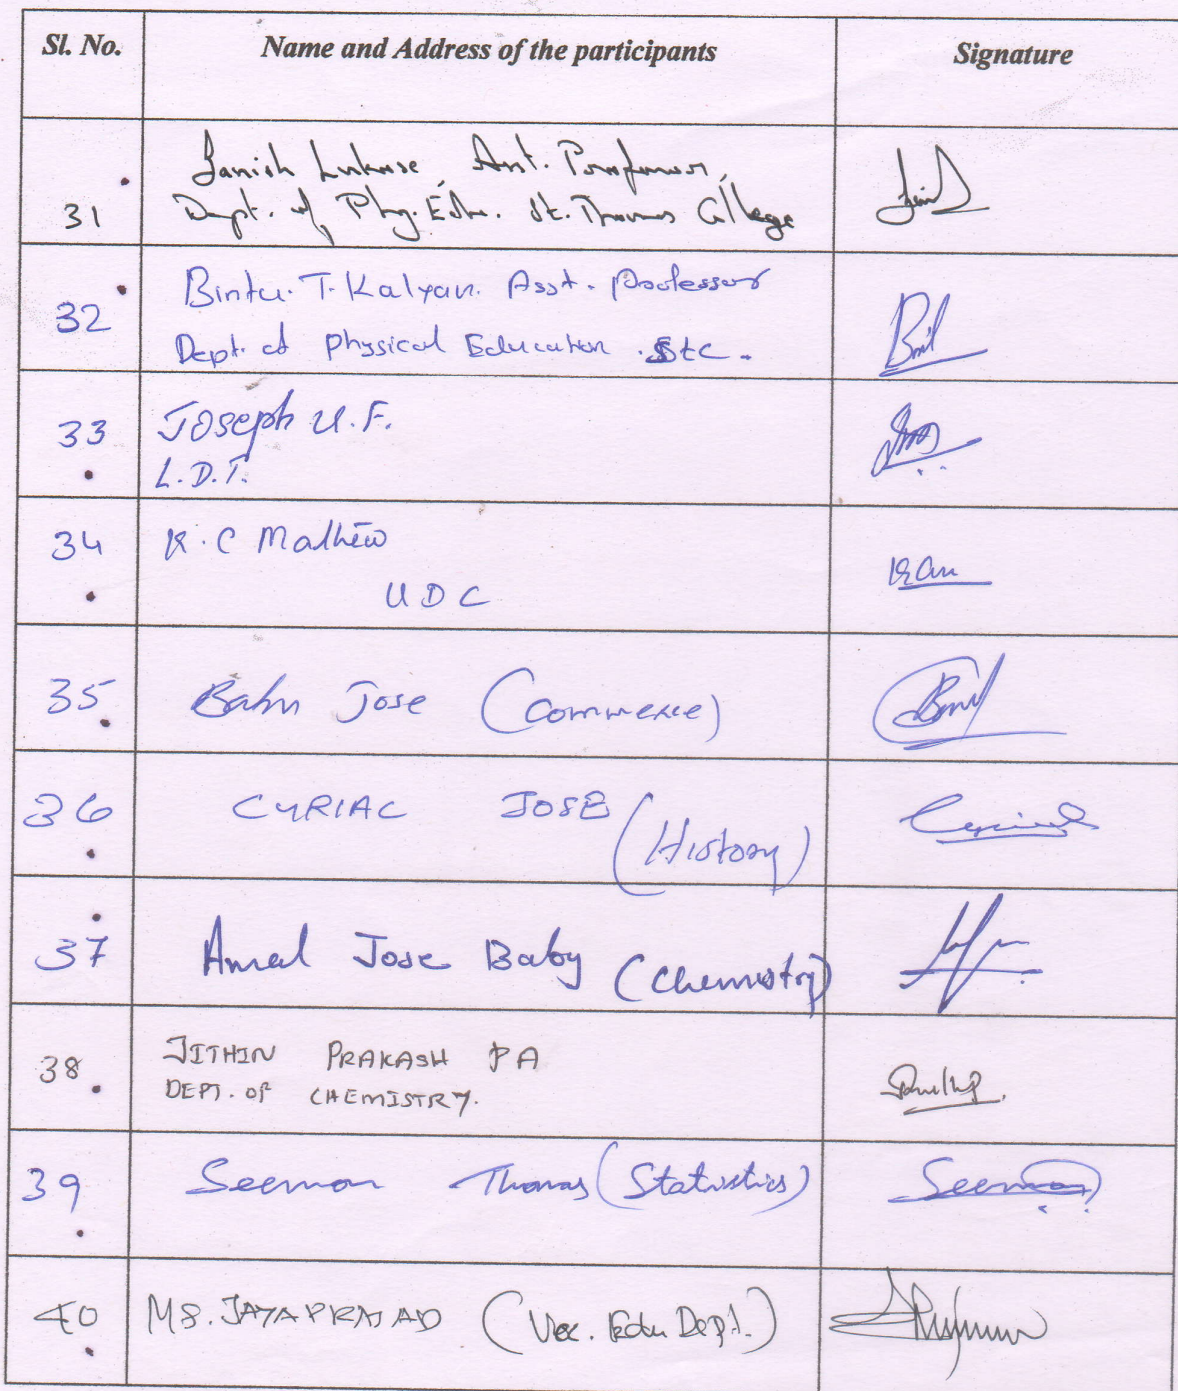 Sl. No. Name and Address of the participants Signature
31 Janish Lukose, Asst. Professor,
Dept. of Phy. Edn. St. Thomas College
32 Bintu. T. Kalyan. Asst. Professor
Dept. of Physical Education. Stc.
33 Joseph U.F.
L.D.T.
34 K.C Mathew
UDC
35 Babu Jose (Commerce)
36 CYRIAC JOSE
(History)
37 Amal Jose Baby (Chemistry)
38 JITHIN PRAKASH PA
DEPT. OF CHEMISTRY.
39 Seemon Thomas (Statistics) Seemon
40 MS. JAYAPRASAD (Voc. Edu Dept.)